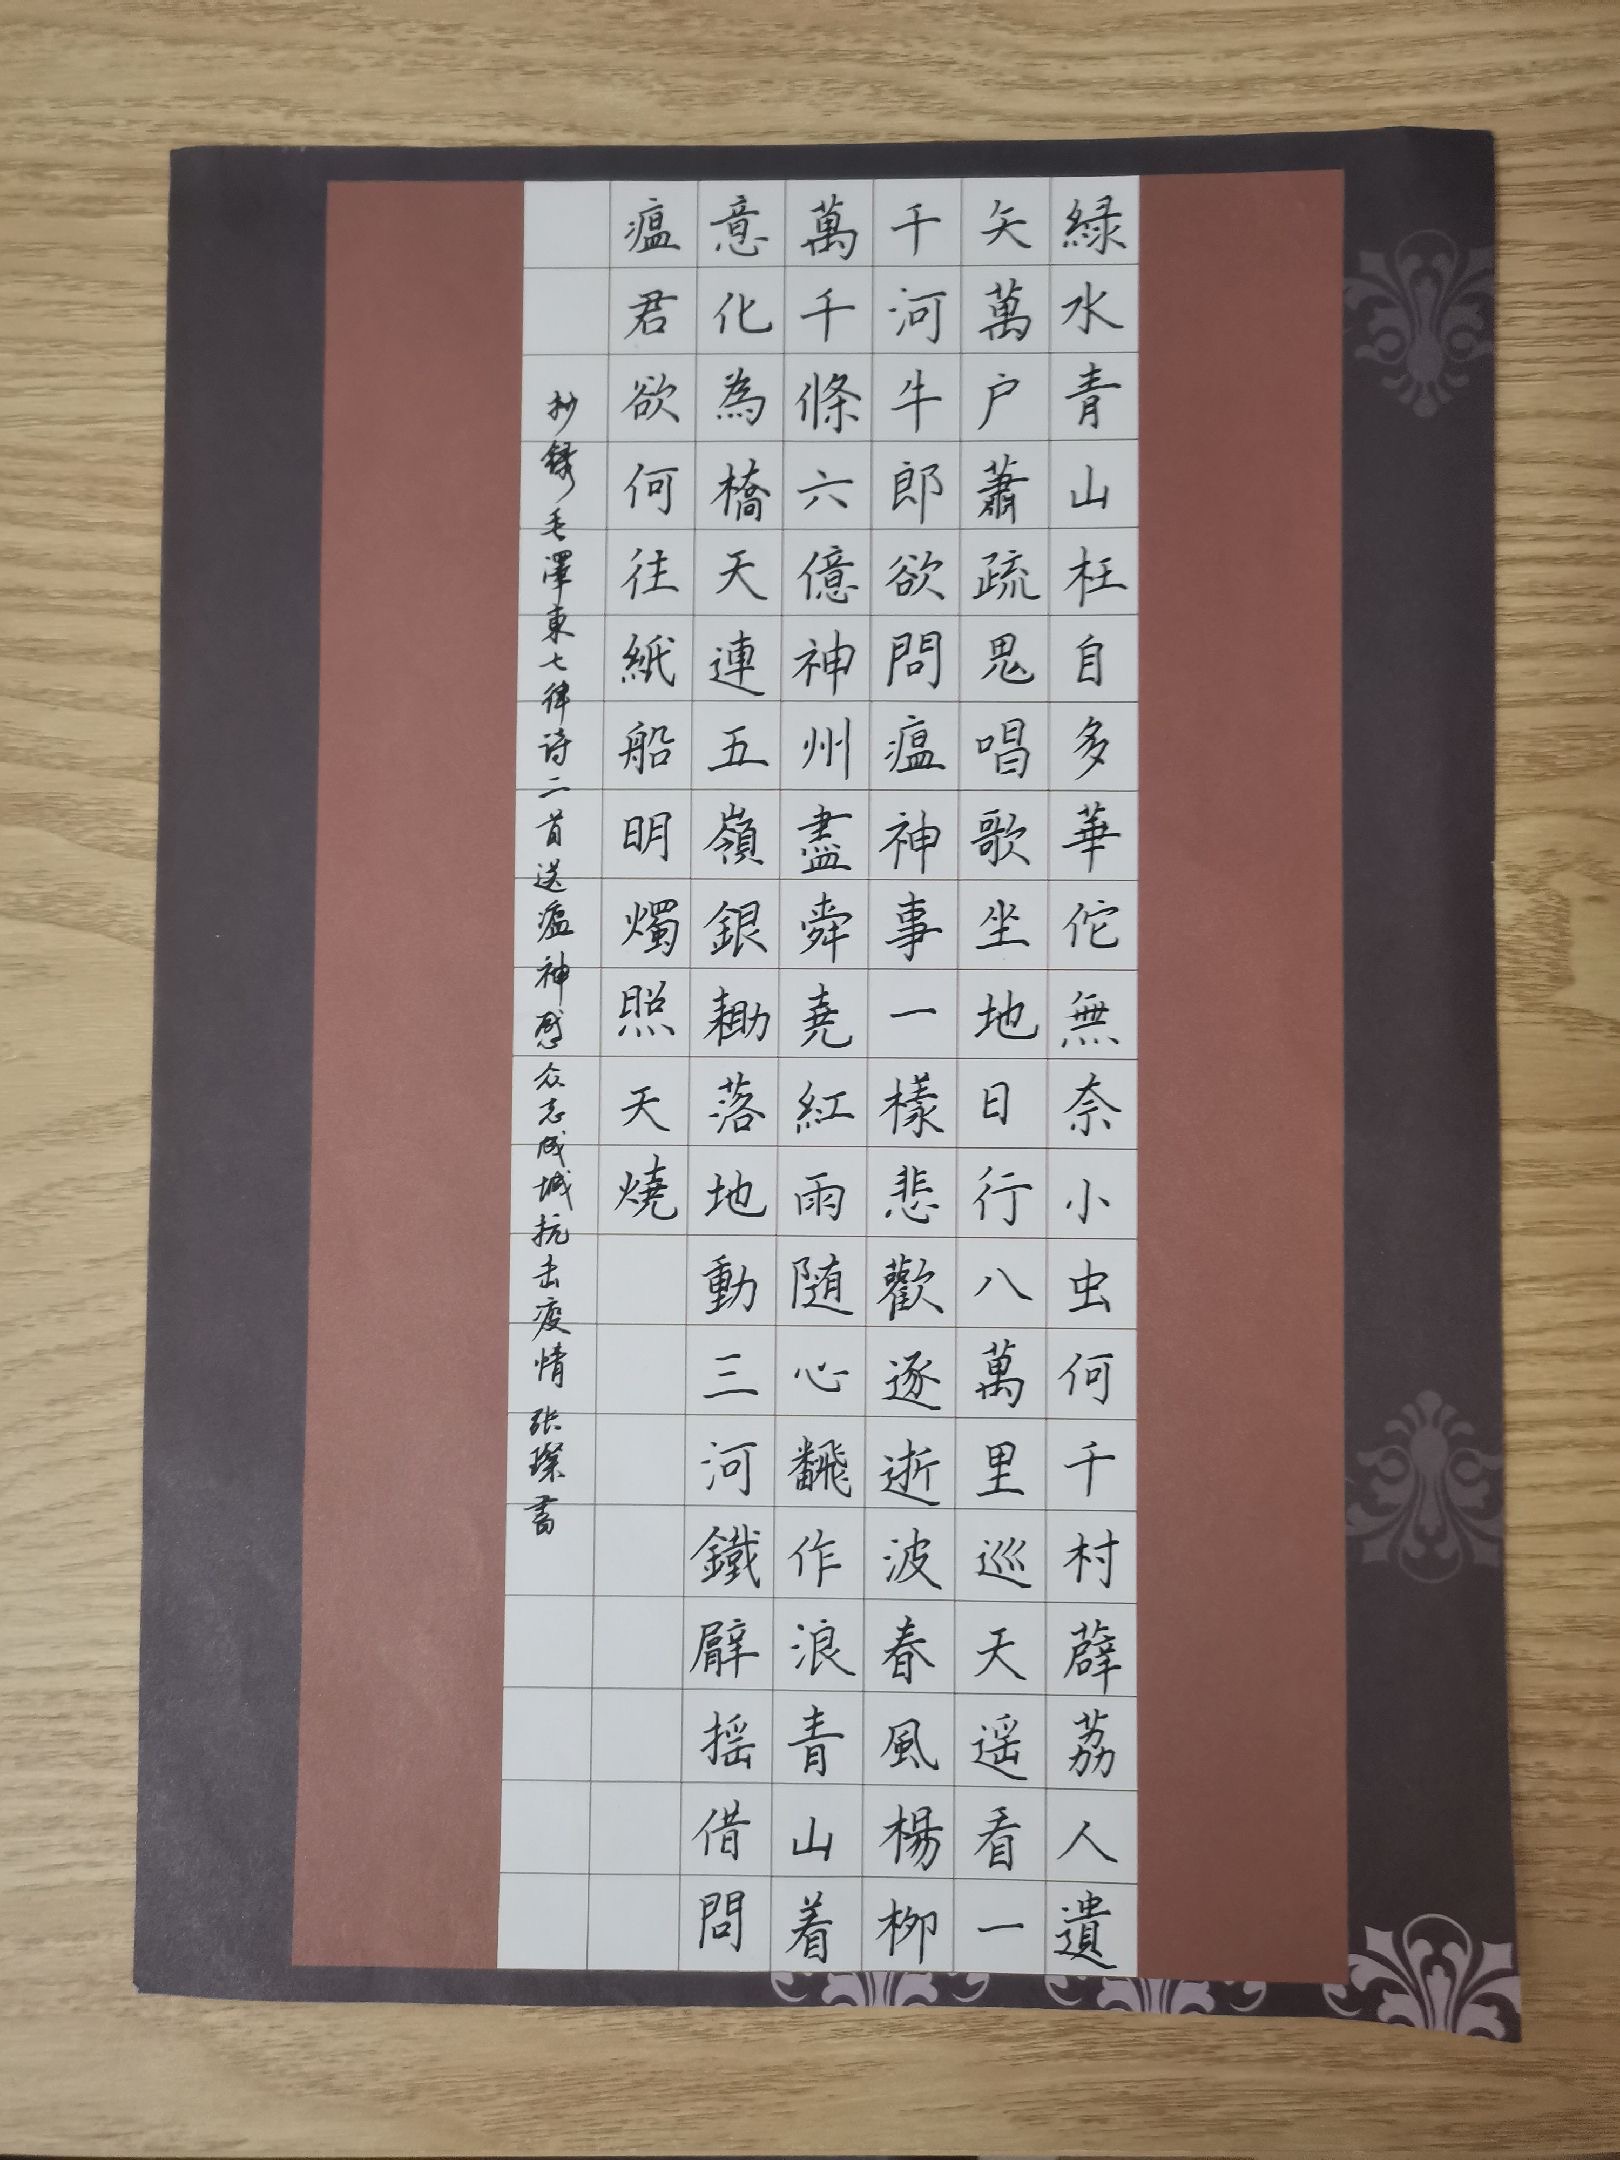 綠水青山枉自多華佗無奈小虫何千村薜荔人遺
矢萬户蕭疏鬼唱歌坐地日行八萬里巡天遥看一
千河牛郎欲問瘟神事一樣悲歡逐逝波春風楊柳
萬千條六億神州盡舜堯紅雨随心飜作浪青山着
意化為橋天連五嶺銀耡落地動三河鐵臂摇借問
瘟君欲何往紙船明燭照天燒
抄録毛澤東七律诗二首送瘟神感众志成城抗击疫情 张璨书